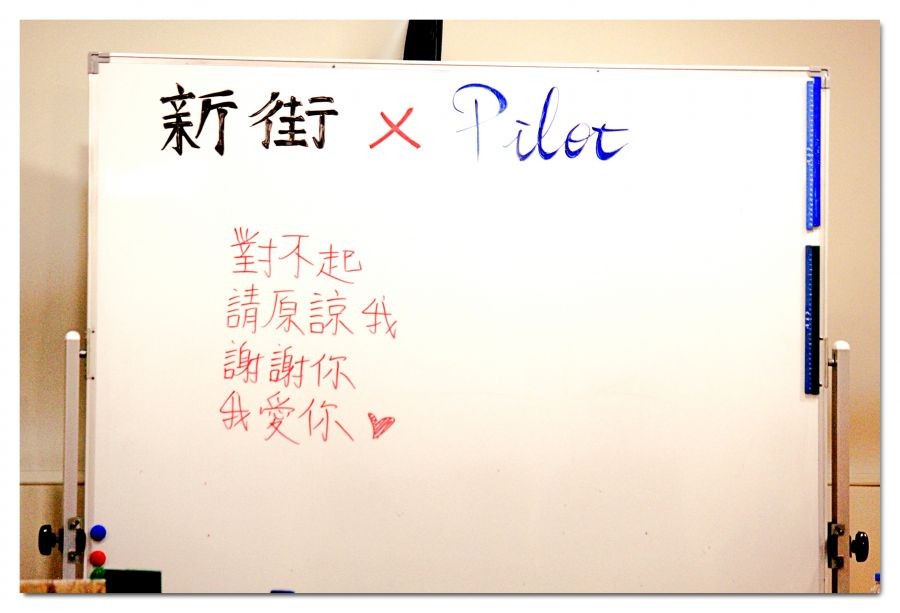 新街 × Pilot
對不起
請原諒我
謝謝你
我愛你♥